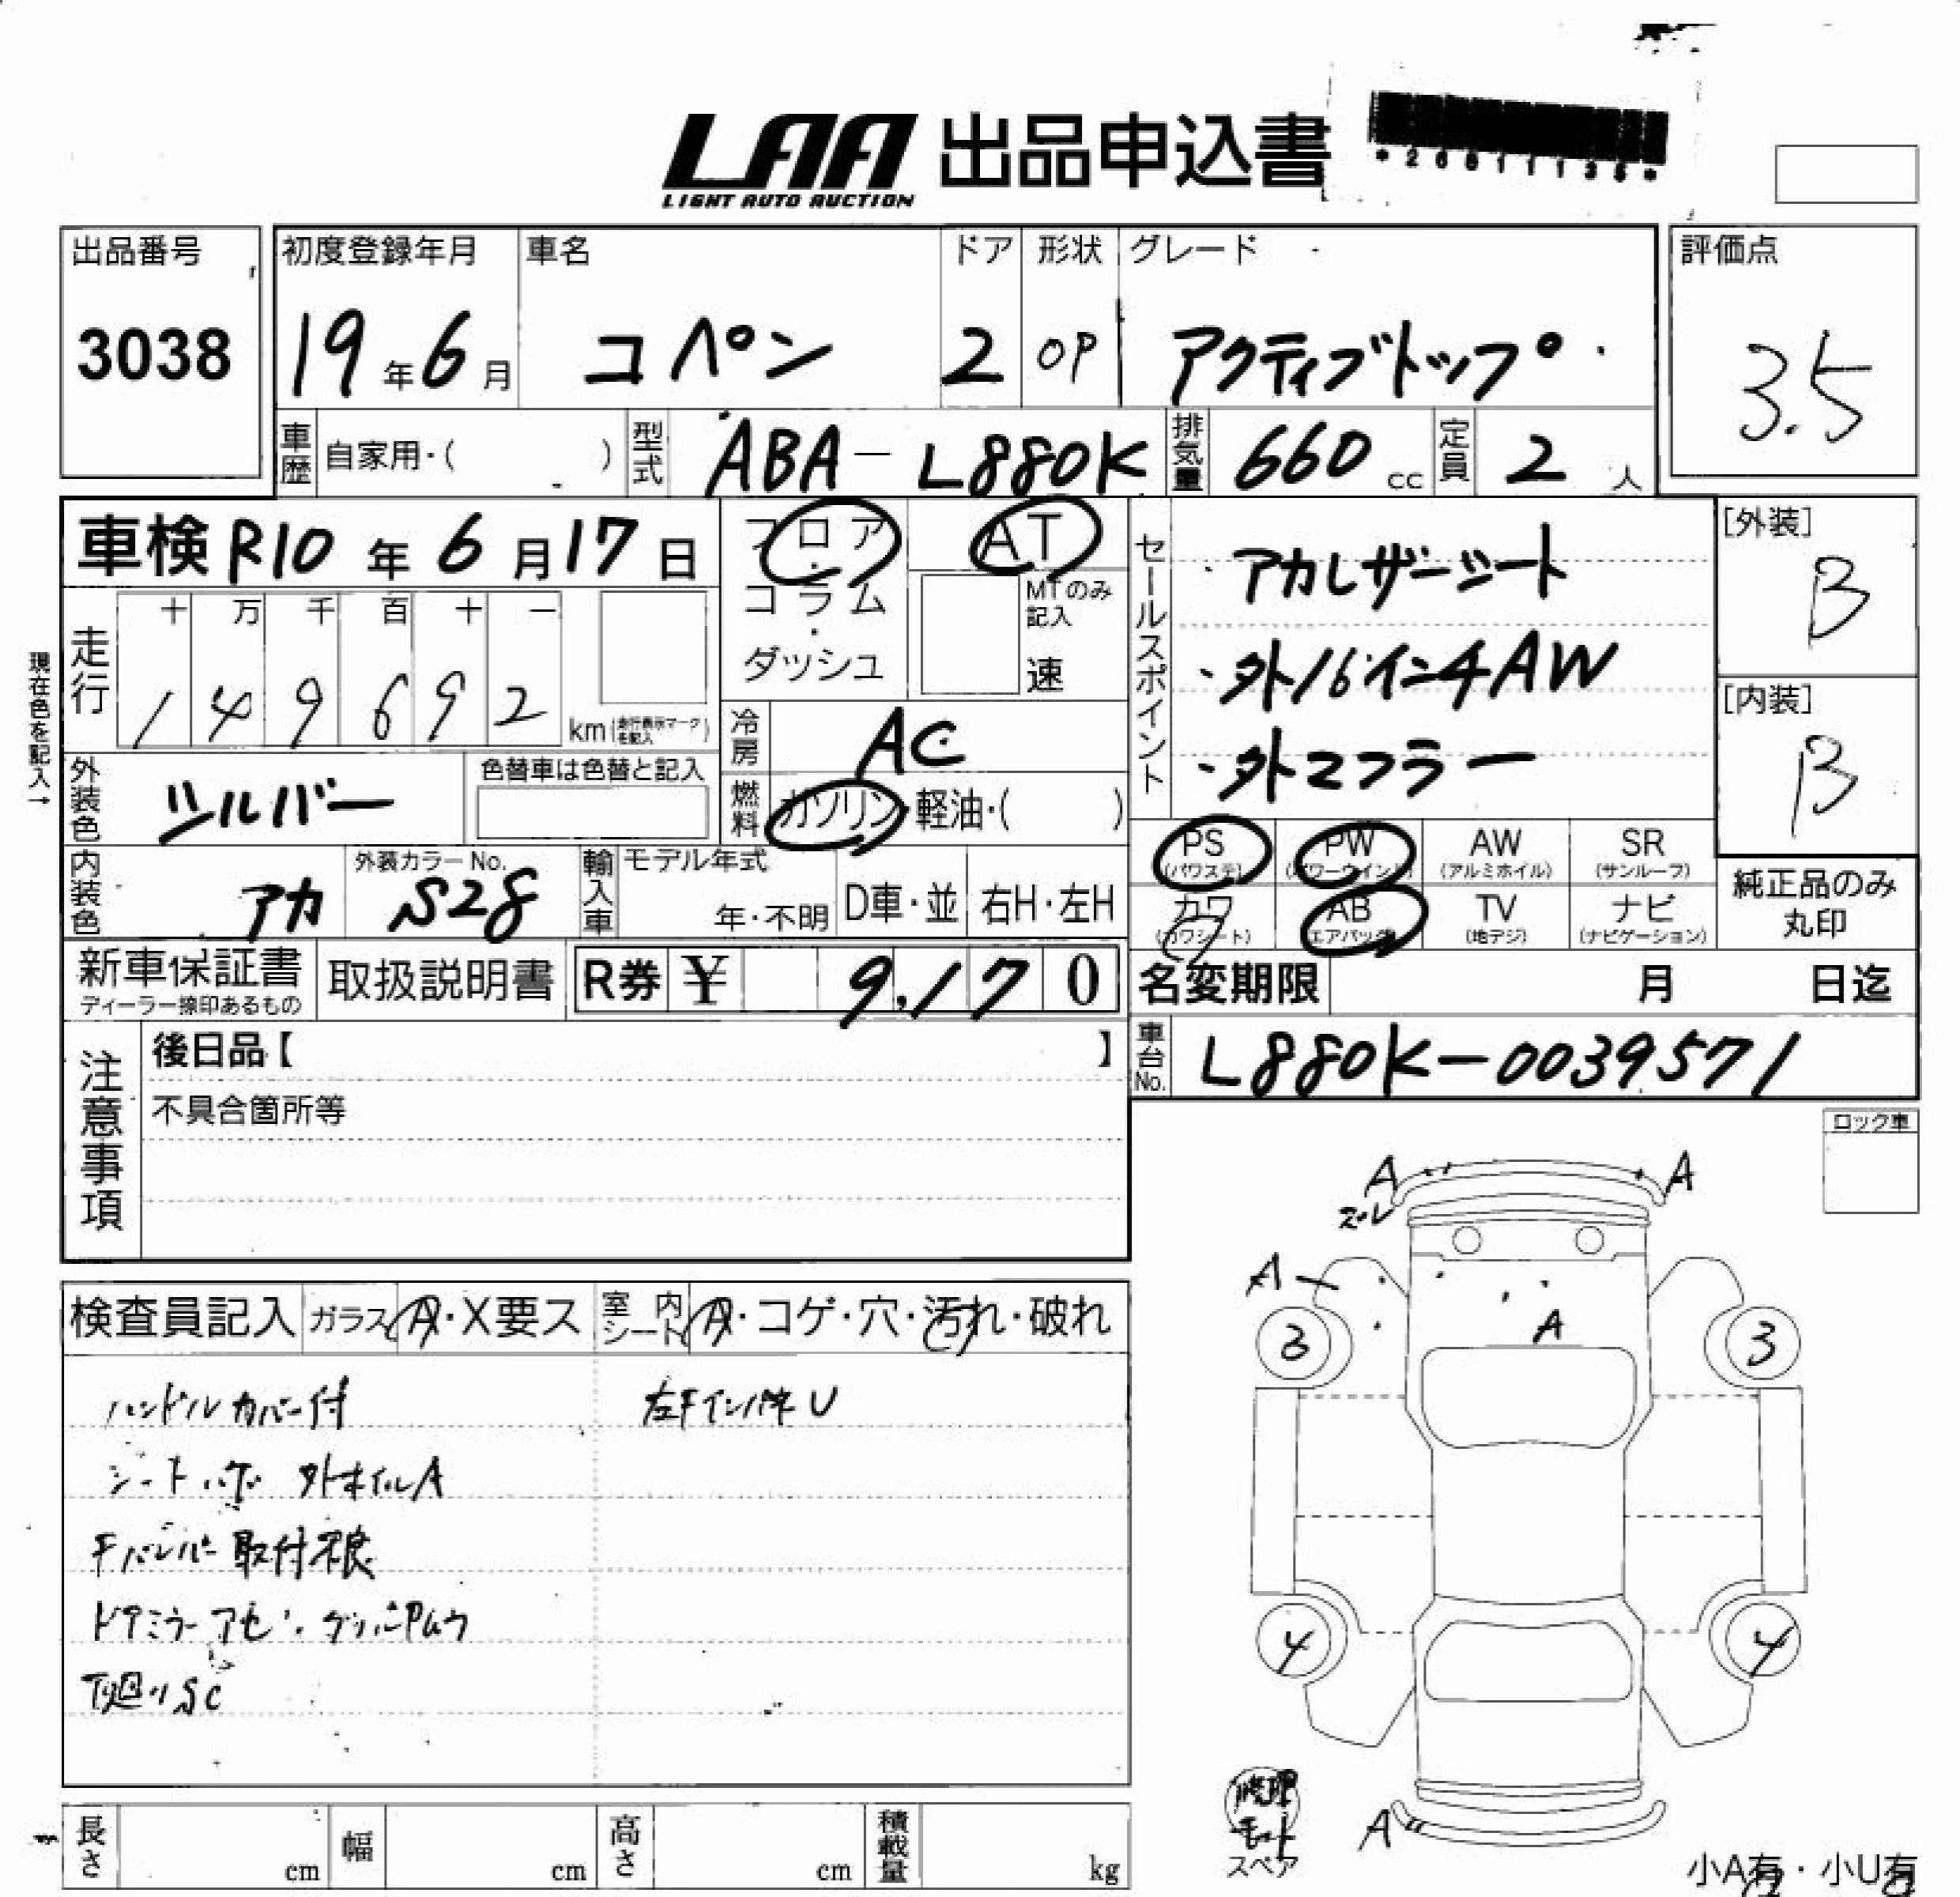 LAA 出品申込書
LIGHT AUTO AUCTION
出品番号
3038
初度登録年月
19年6月
車名
コペン
ドア
2
形状
OP
グレード
アクティブトップ
評価点
3.5
車歴 自家用・( )
型式 ABA-L880K
排気量 660 cc
定員 2 人
車検 R10年6月17日
フロア・コラム・ダッシュ
AT
MTのみ記入
速
セールスポイント
・アカレザーシート
・外16インチAW
・外マフラー
[外装]
B
[内装]
B
現在色を記入→
走行
十 万 千 百 十 一
1 4 9 6 9 2 km(走行表示マークを記入)
冷房 AC
外装色 シルバー
色替車は色替と記入
燃料 ガソリン・軽油・( )
PS (パワステ)
PW (パワーウインド)
AW (アルミホイル)
SR (サンルーフ)
カワ (カワシート)
AB (エアバッグ)
TV (地デジ)
ナビ (ナビゲーション)
純正品のみ丸印
内装色 アカ
外装カラーNo. S28
輸入車
モデル年式
年・不明
D車・並
右H・左H
新車保証書
ディーラー捺印あるもの
取扱説明書
R券 ¥ 9,170
名変期限 月 日迄
車台No. L880K-0039571
注意事項
後日品【 】
不具合箇所等
ロック車
検査員記入
ガラス A・X要ス
室内シート A・コゲ・穴・汚れ・破れ
ハンドルカバー付
外ホイルA
取付不良
ドアミラー
下廻りSC
A
A
ズレ
A
A
3
3
4
4
A
修理
スペア
小A有・小U有
長さ cm
幅 cm
高さ cm
積載量 kg